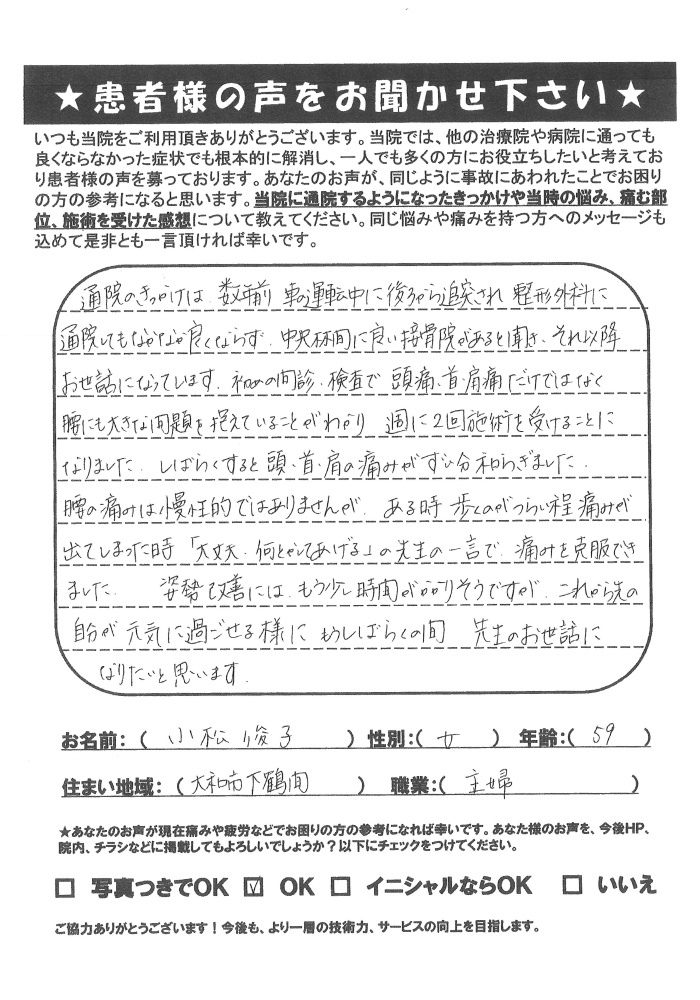 ★患者様の声をお聞かせ下さい★
いつも当院をご利用頂きありがとうございます。当院では、他の治療院や病院に通っても
良くならなかった症状でも根本的に解消し、一人でも多くの方にお役立ちしたいと考えてお
り患者様の声を募っております。あなたのお声が、同じように事故にあわれたことでお困り
の方の参考になると思います。当院に通院するようになったきっかけや当時の悩み、痛む部
位、施術を受けた感想について教えてください。同じ悩みや痛みを持つ方へのメッセージも
込めて是非とも一言頂ければ幸いです。
通院のきっかけは 数年前 車の運転中に後ろから追突され 整形外科に
通院してもなかなか良くならず、中央林間に良い接骨院があると聞き、それ以降
お世話になっています。初めの問診、検査で 頭痛、首、肩痛だけではなく
腰にも大きな問題を抱えていることがわかり 週に2回施術を受けることに
なりました。しばらくすると頭、首、肩の痛みがずい分和らぎました。
腰の痛みは慢性的ではありませんが、ある時 歩くのがつらい程 痛みが
出てしまった時 「大丈夫、何とかしてあげる」の先生の一言で、痛みを克服でき
ました。 姿勢改善には、もう少し時間がかかりそうですが、これから先の
自分が 元気に過ごせる様に もうしばらくの間 先生のお世話に
なりたいと思います。
お名前:( 小松俊子 ) 性別:( 女 ) 年齢:( 59 )
住まい地域:( 大和市下鶴間 ) 職業:( 主婦 )
★あなたのお声が現在痛みや疲労などでお困りの方の参考になれば幸いです。あなた様のお声を、今後HP、
院内、チラシなどに掲載してもよろしいでしょうか?以下にチェックをつけてください。
□ 写真つきでOK ☑ OK □ イニシャルならOK □ いいえ
ご協力ありがとうございます!今後も、より一層の技術力、サービスの向上を目指します。